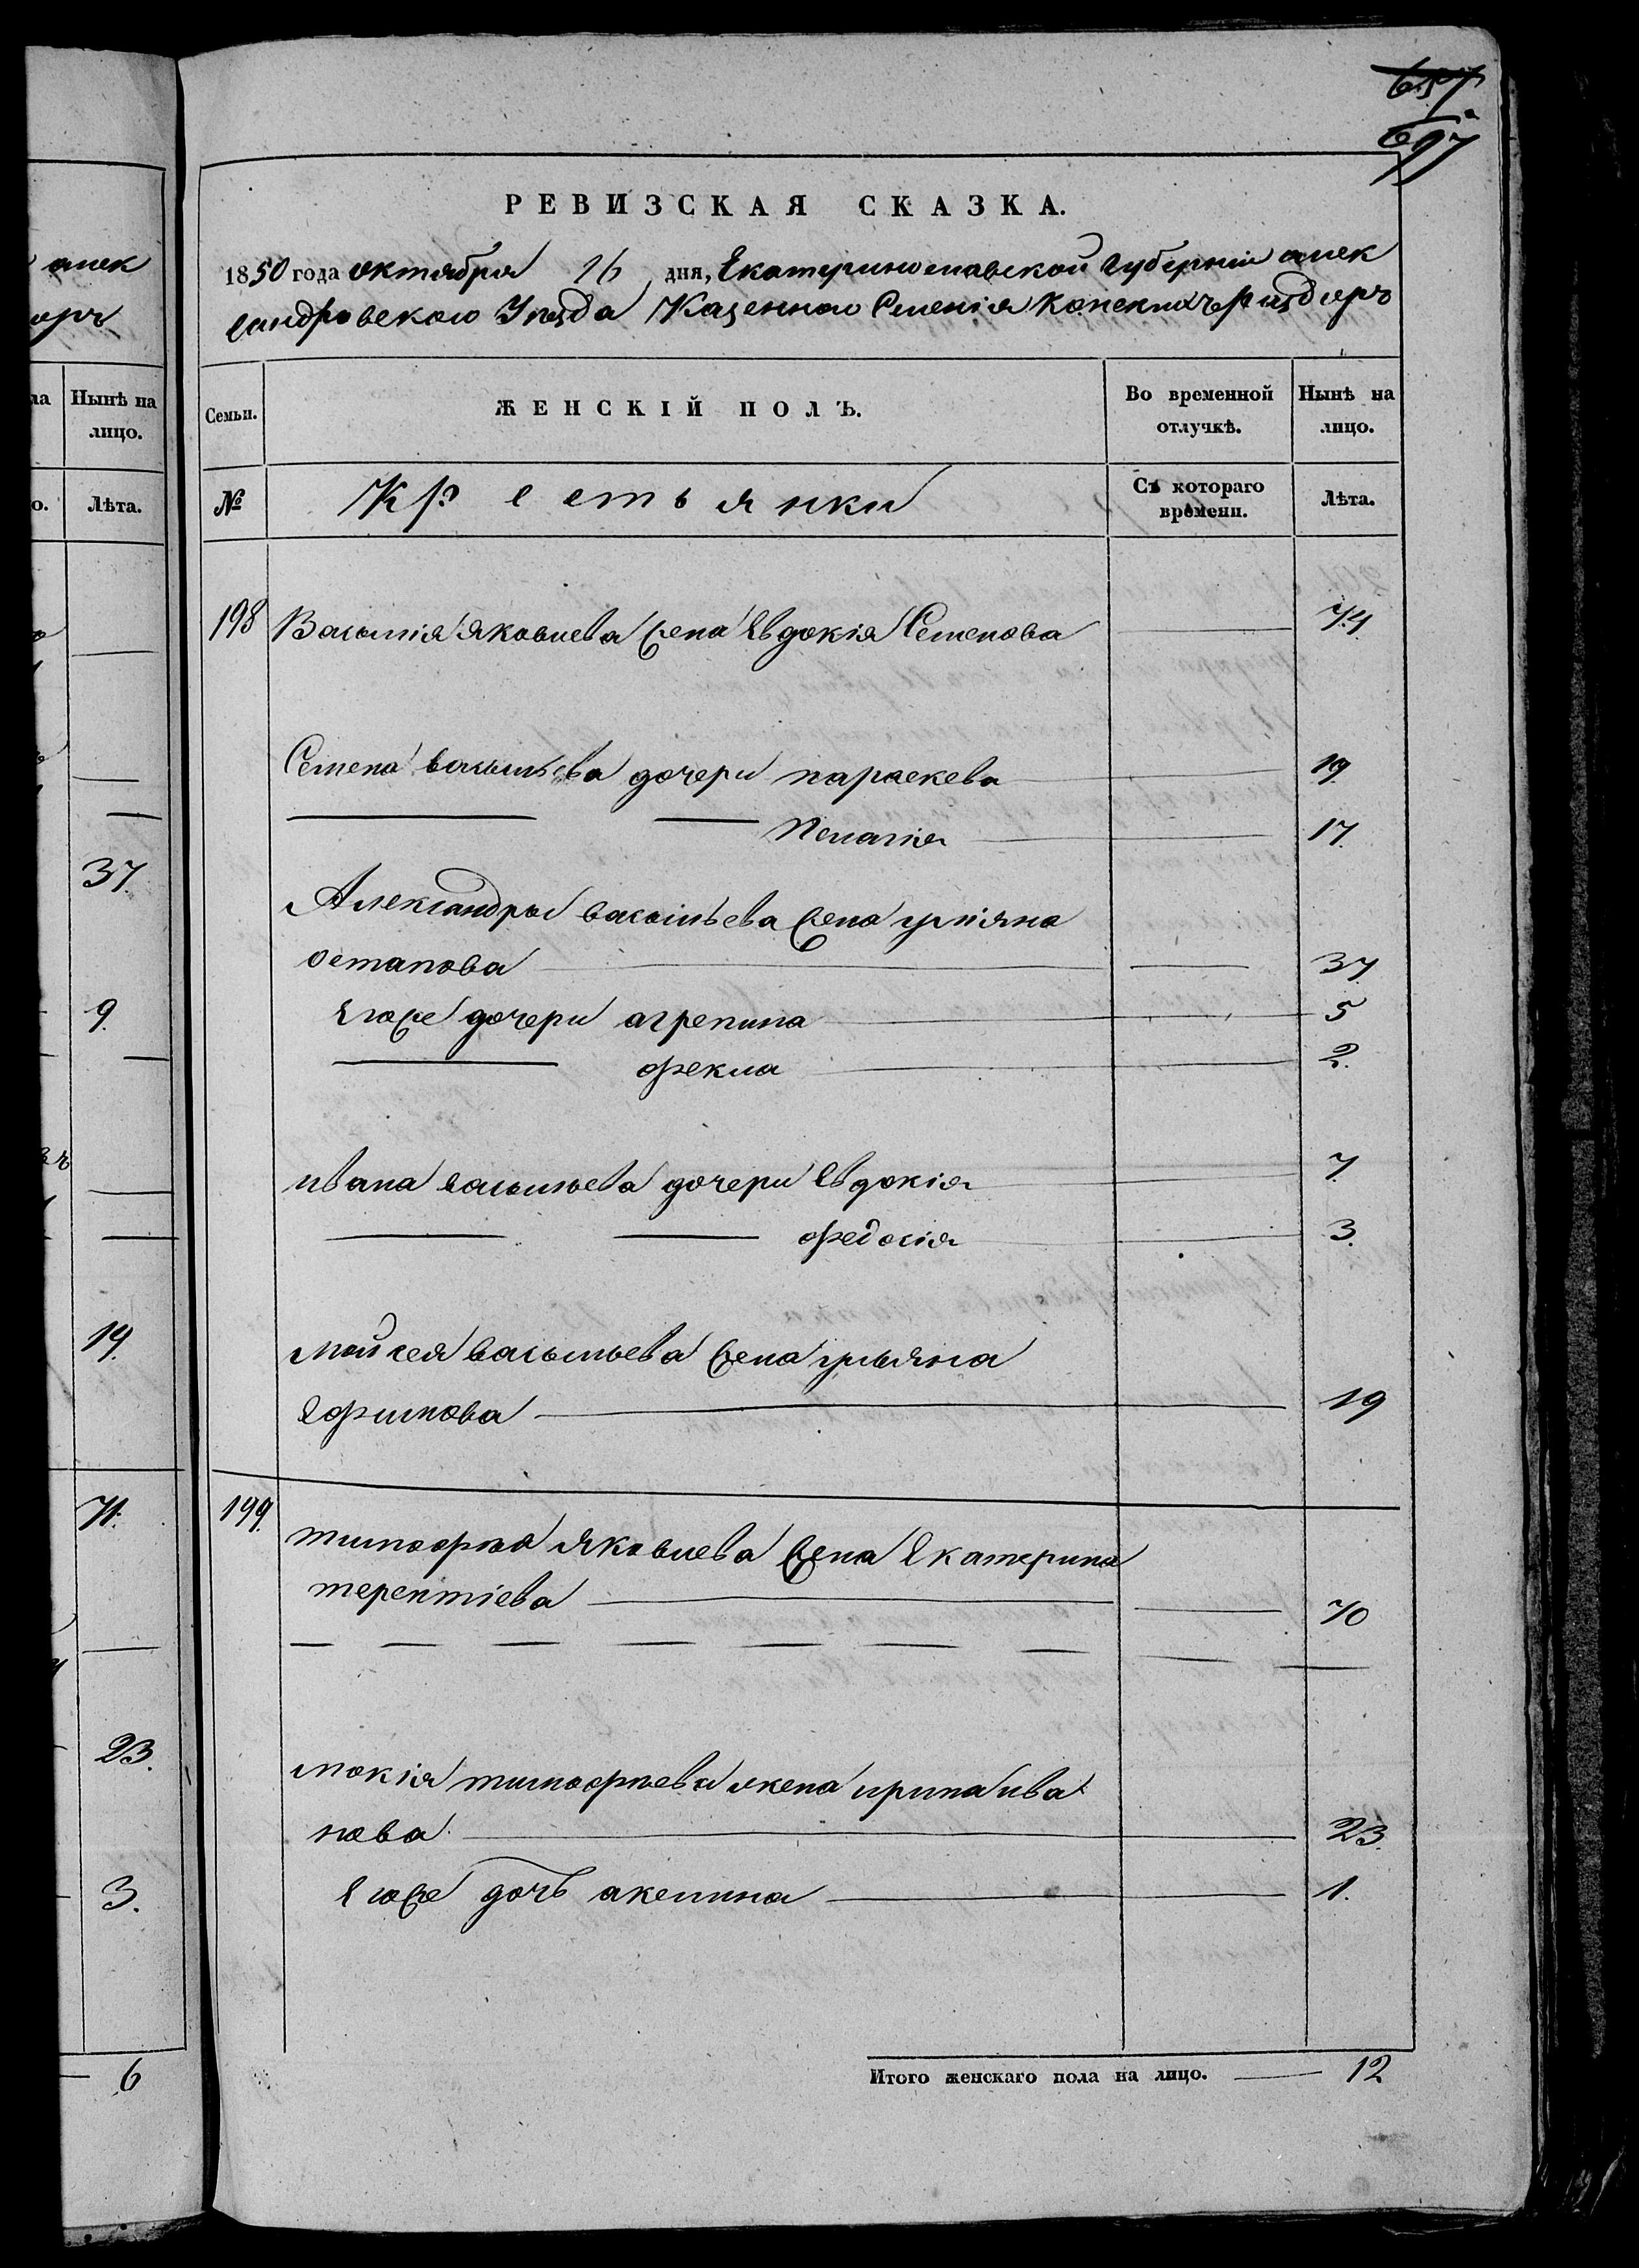 657
697
РЕВИЗСКАЯ СКАЗКА.
1850 года октября 16 дня, Екатеринославской губерніи алек
сандровского Уѣзда Казенного Селенія Конскихъ Раздоръ
алек
оръ
ла
Нынѣ на
лицо.
о.
Лѣта.
Семьи.
ЖЕНСКІЙ ПОЛЪ.
Во временной
отлучкѣ.
Нынѣ на
лицо.
№
Крестьянки
Съ котораго
времени.
Лѣта.
198 Василія Яковлева жена Евдокія Семенова 74
Семена васильева дочери параскева 19
Пелагія 17
Александры васильева жена уліяна
остапова 37
Егоже дочери агрепина 5
фекла 2.
ивана васильева дочери Евдокія 7
федосія 3.
мойсея васильева жена ульяна
Ефимова 19
199. тимофея Яковлева жена Екатерина
терентіева 70
мокія тимофѣева жена ирина ива
нова 23.
Егоже дочь аксинина 1.
Итого женскаго пола на лицо. 12
37.
9.
14.
71.
23.
3.
6